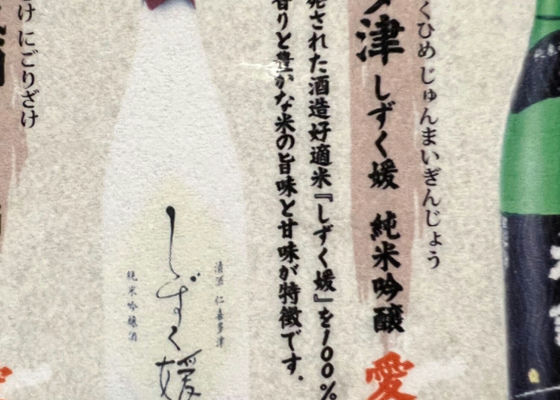 くひめ じゅんまいぎんじょう
津 しずく媛 純米吟醸
愛
された酒造好適米『しずく媛』を100%
香りと豊かな米の旨味と甘味が特徴です。
清酒 仁喜多津
しずく媛
純米吟醸酒
け にごりざけ